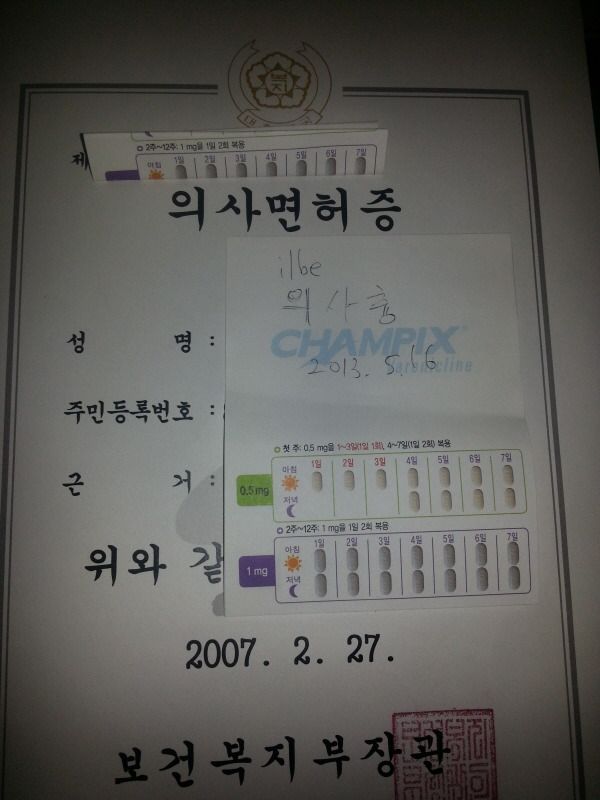 복지
제
2주~12주: 1 mg을 1일 2회 복용
아침 1일 2일 3일 4일 5일 6일 7일
의사면허증
ilbe
의사흉
CHAMPIX
varenicline
2013. 5. 16
성 명 :
주민등록번호 :
근 거 :
첫 주: 0.5 mg을 1~3일(1일 1회), 4~7일(1일 2회) 복용
아침 1일 2일 3일 4일 5일 6일 7일
0.5 mg
저녁
2주~12주: 1 mg을 1일 2회 복용
아침 1일 2일 3일 4일 5일 6일 7일
1 mg
저녁
위와 같
2007. 2. 27.
보건복지부장관